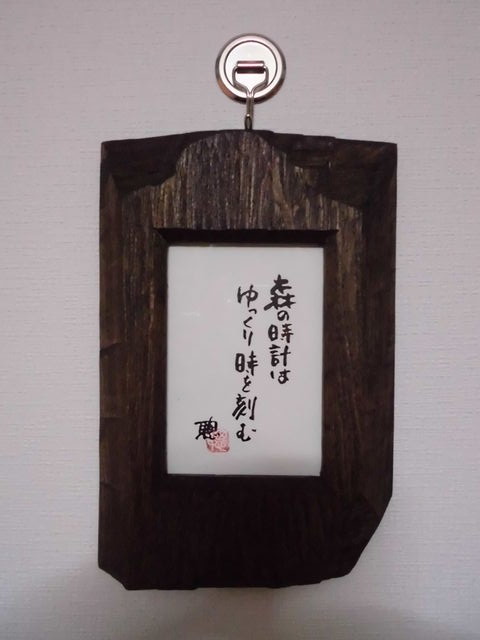 森の時計は
ゆっくり時を刻む
聰